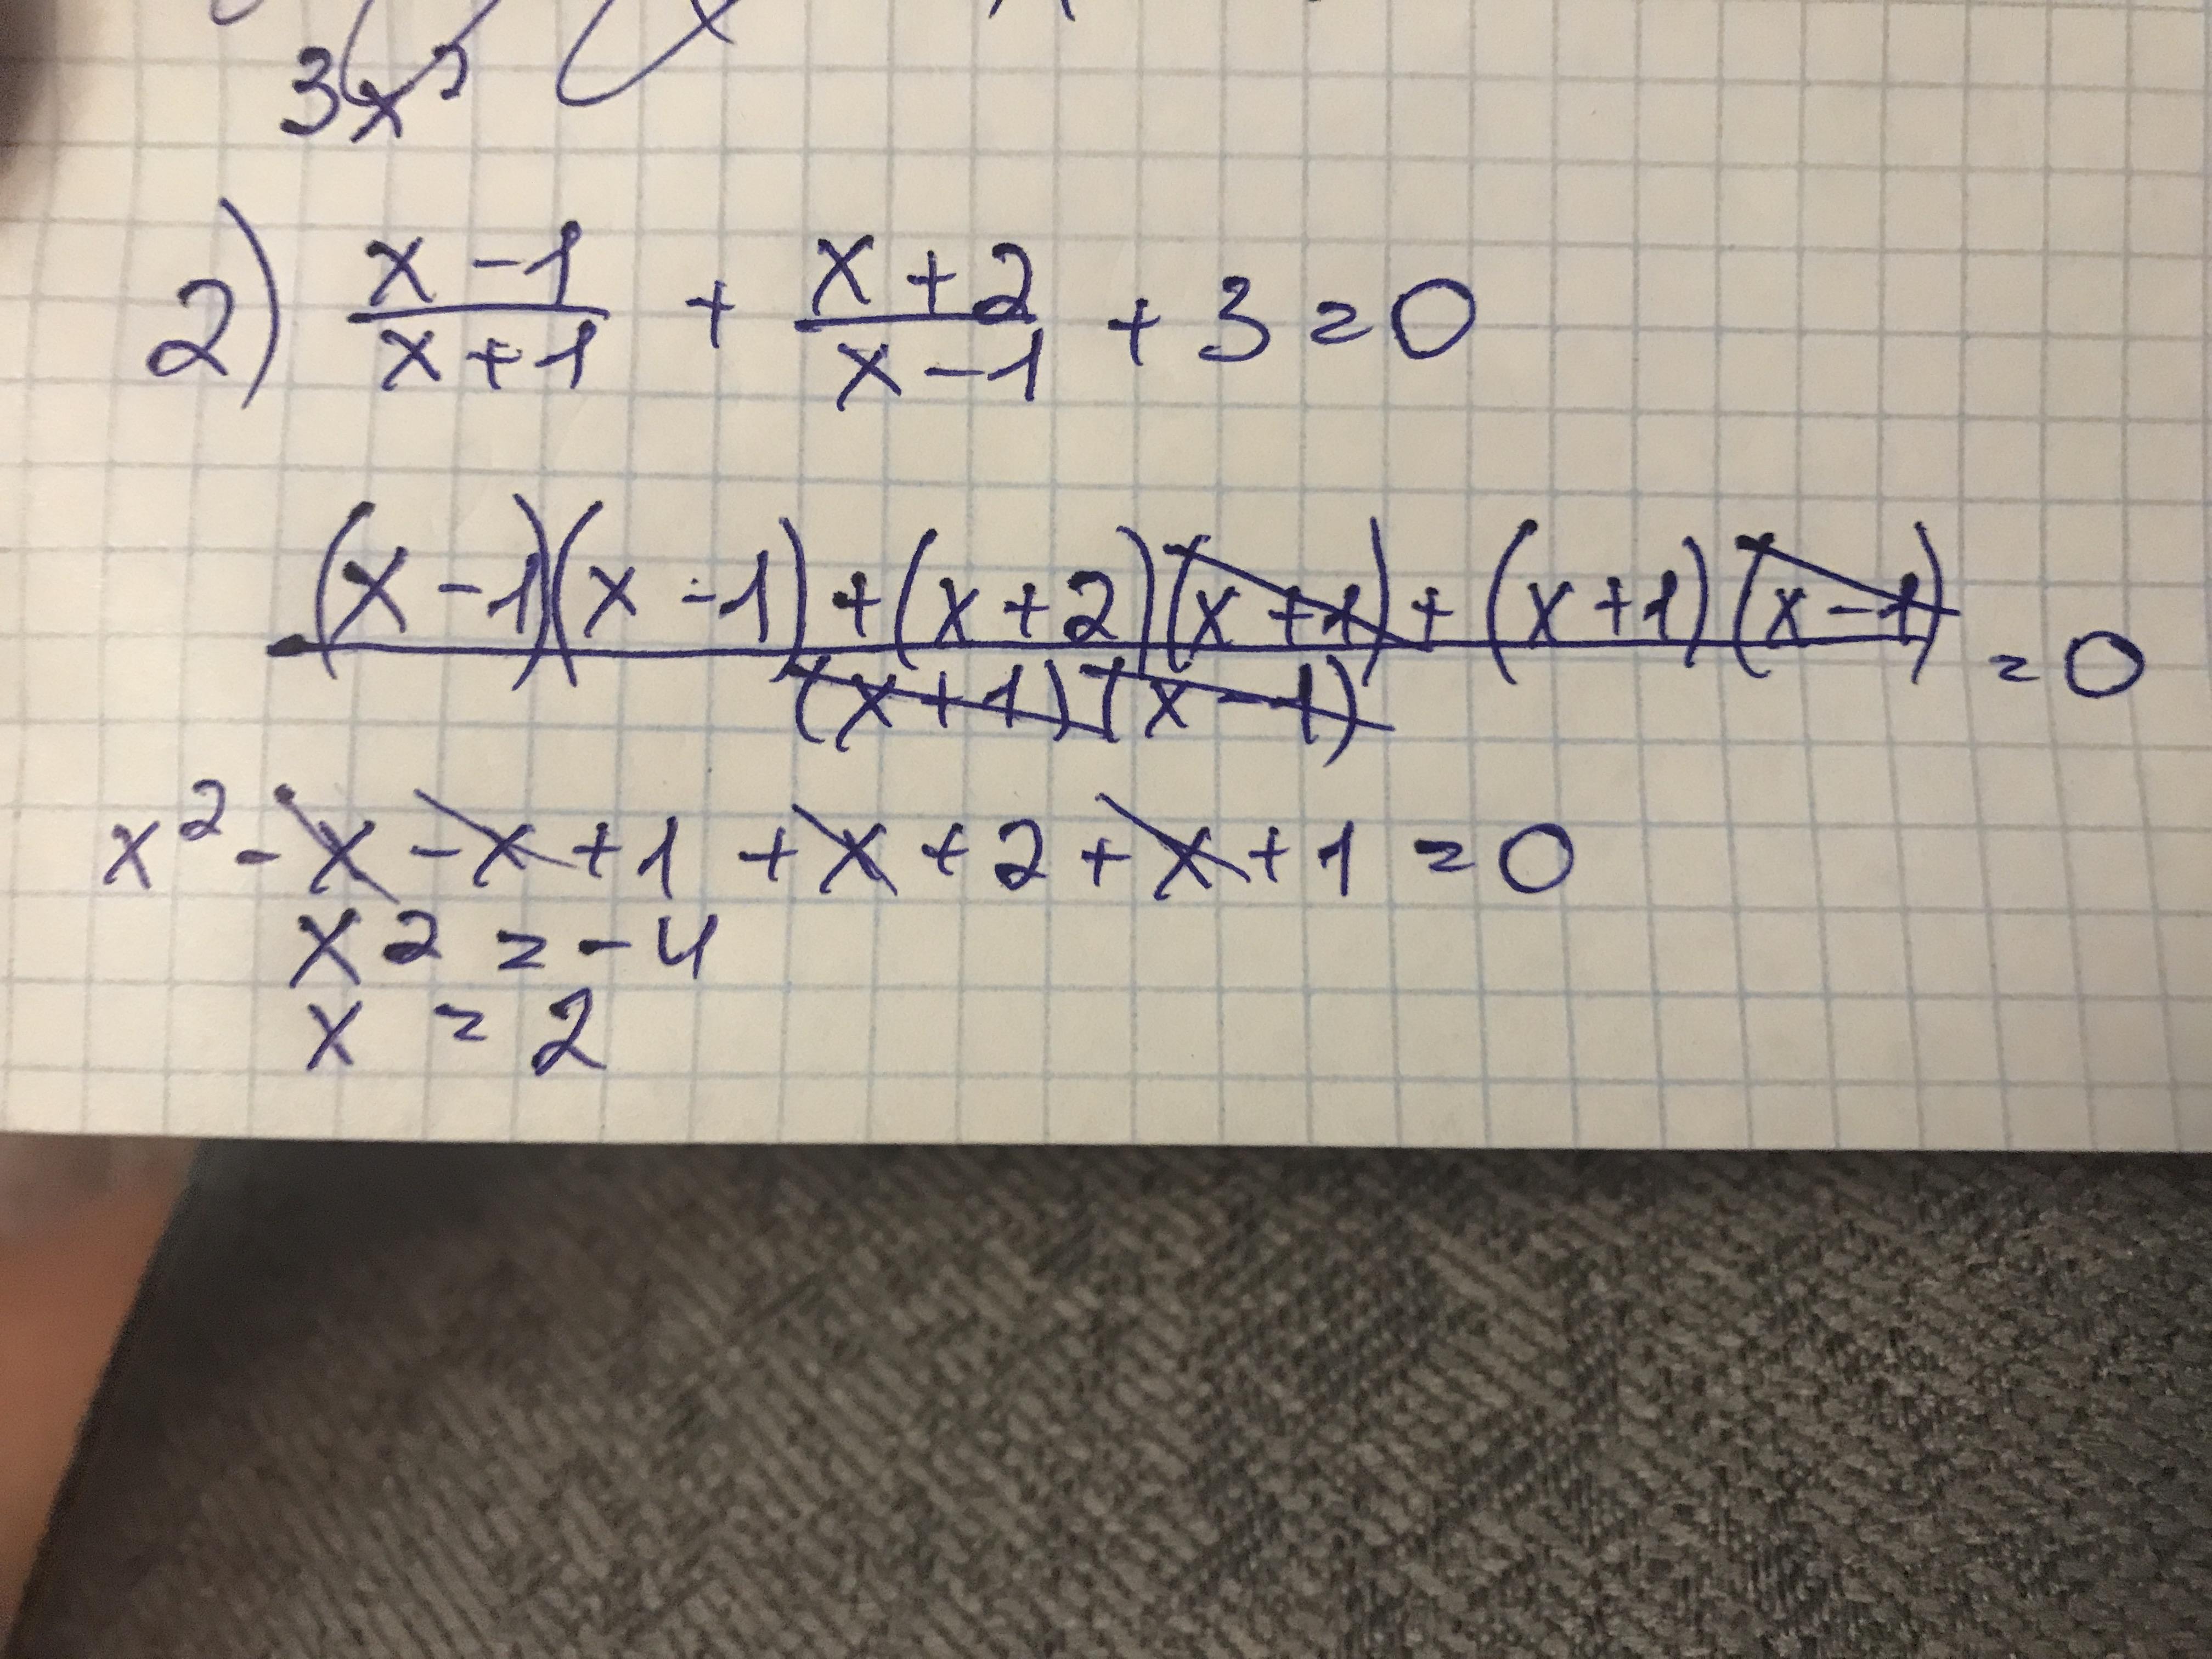 3x
2) (x-1)/(x+1) + (x+2)/(x-1) + 3 = 0
((x-1)(x-1) + (x+2)(x+1) + (x+1)(x-1))/((x+1)(x-1)) = 0
x² - x - x + 1 + x + 2 + x + 1 = 0
x2 = -4
x = 2